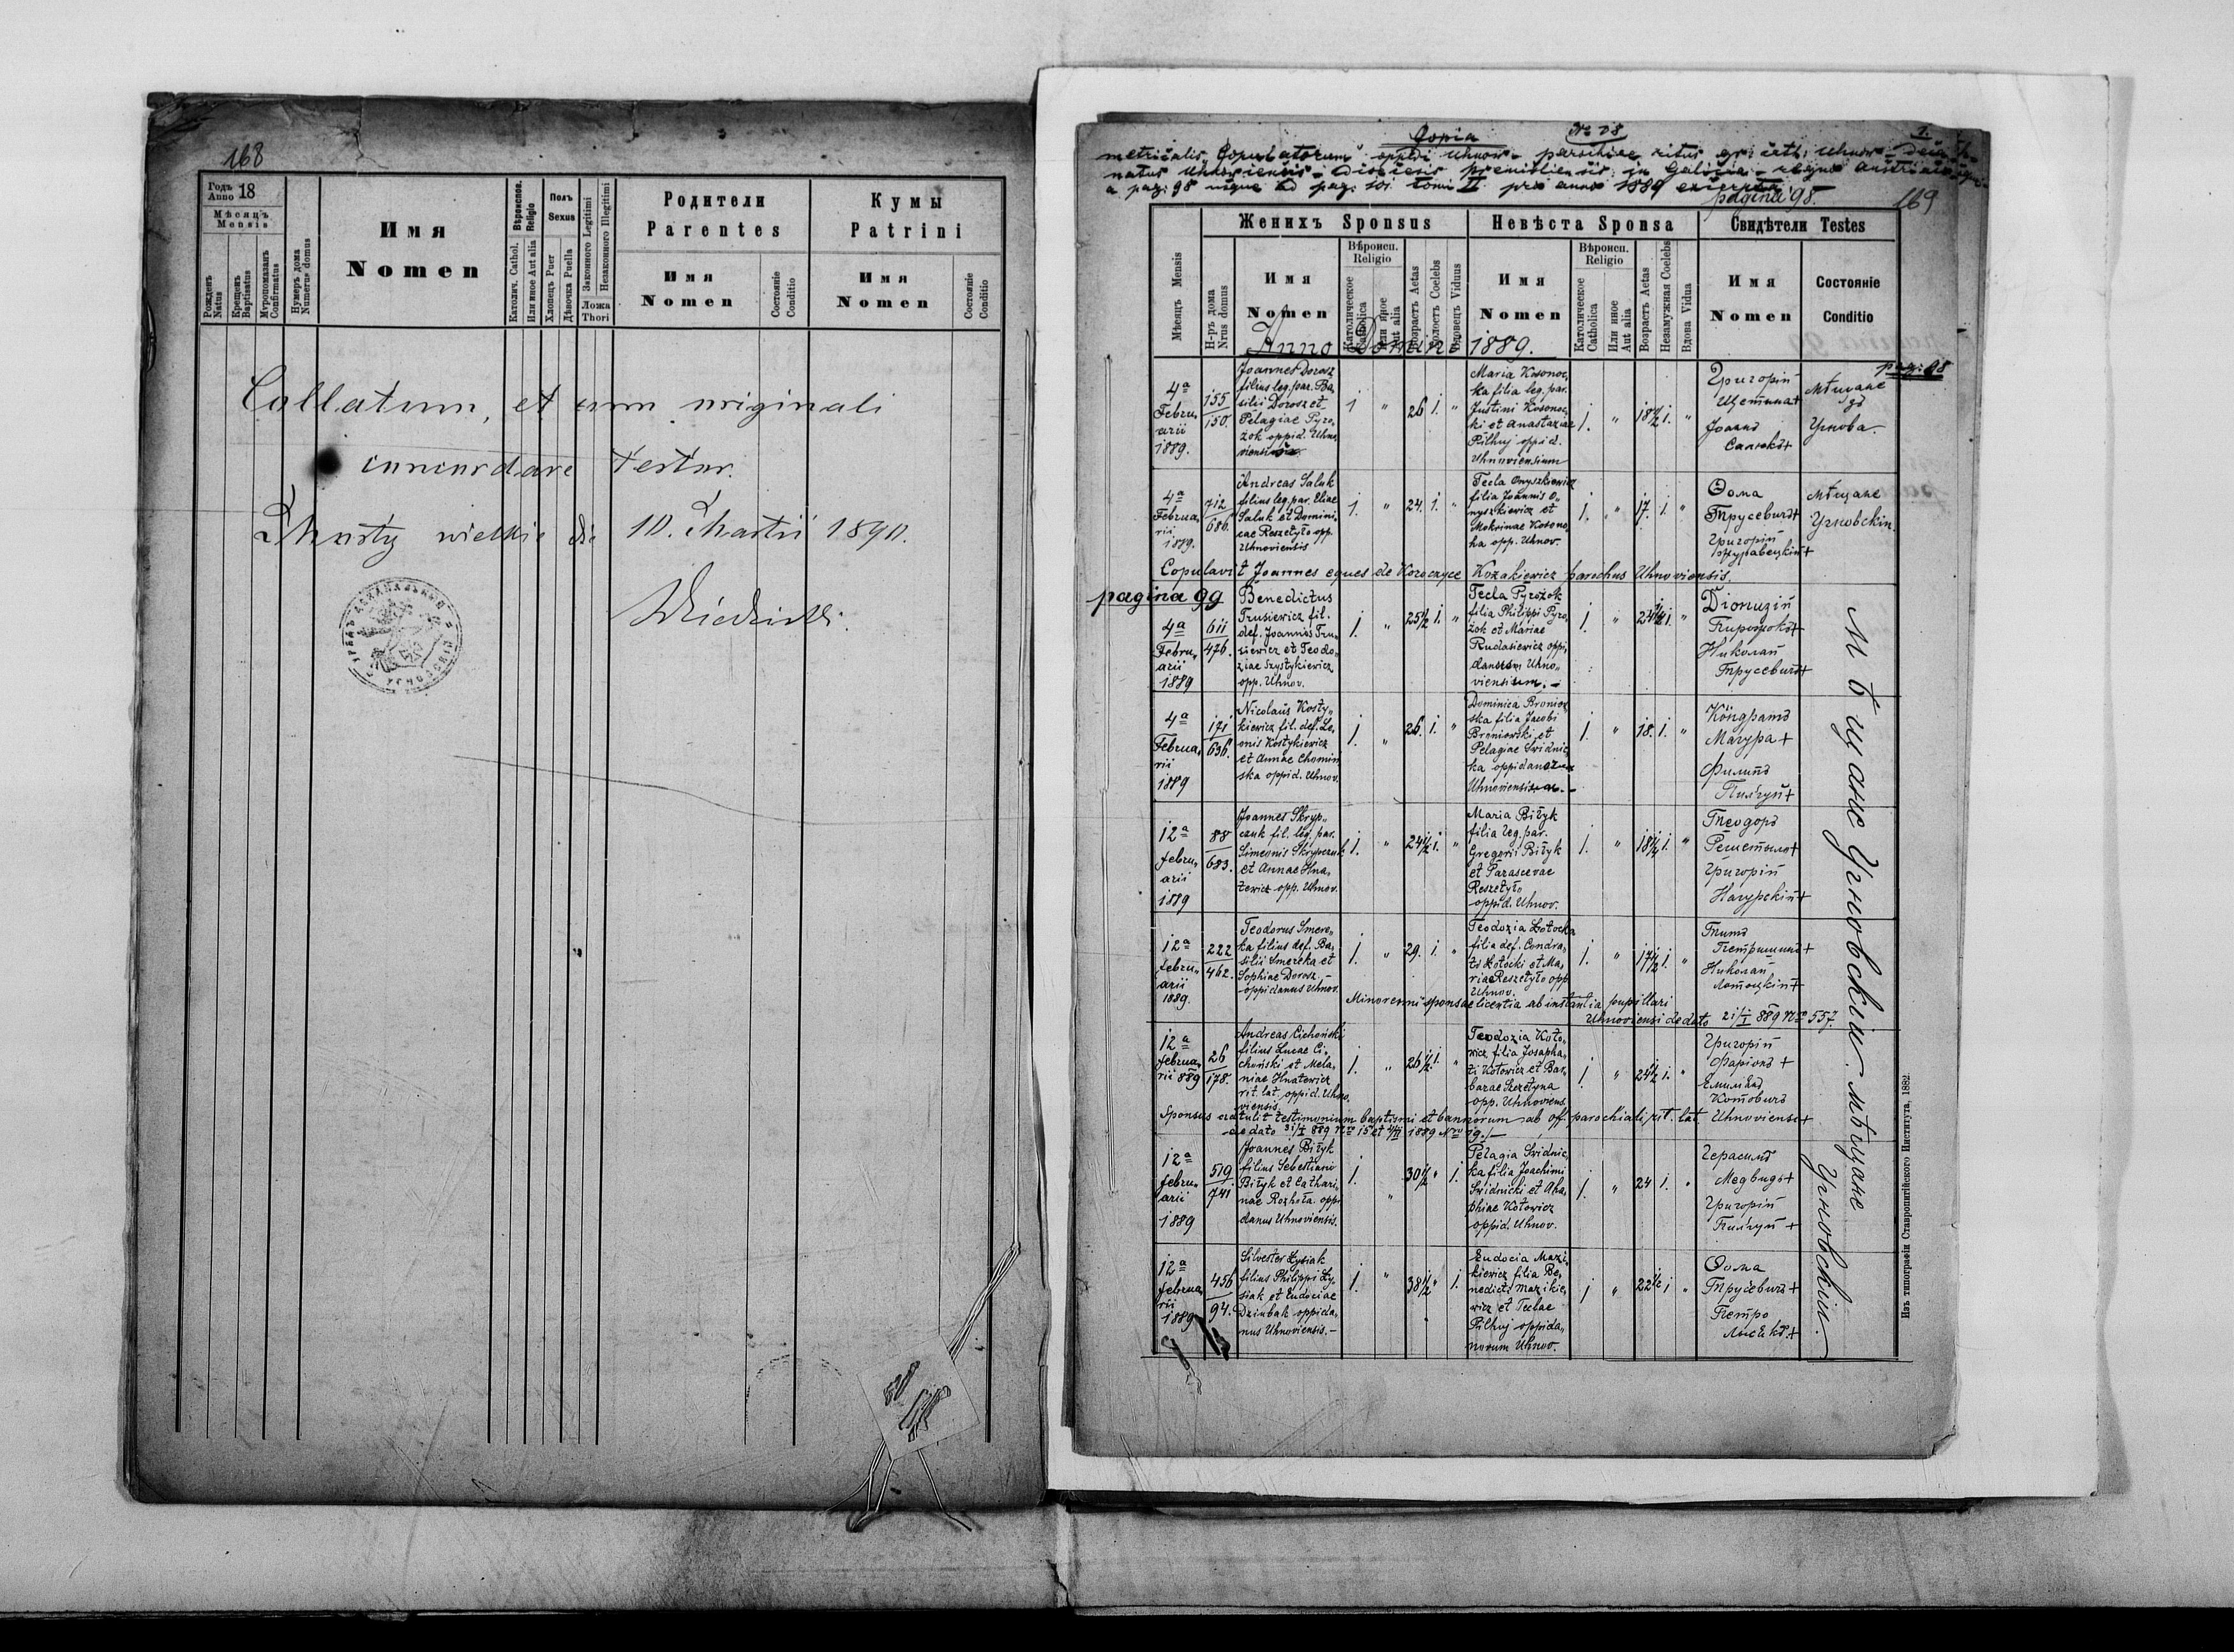 168
Годъ Anno 18
Мѣсяцъ Mensis
Рожденъ Natus
Крещенъ Baptisatus
Мѵропомазанъ Confirmatus
Нумеръ дома Numerus domus
Имя
Nomen
Вѣроиспов. Religio
Католич. Cathol.
Или иное Aut alia
Полъ Sexus
Хлопецъ Puer
Дѣвочка Puella
Законного Legitimi
Незаконного Illegitimi
Ложа Thori
Родители
Parentes
Имя
Nomen
Состоянiе Conditio
Кумы
Patrini
Имя
Nomen
Состоянiе Conditio
Collatum, et cum originali
concordare testor.
Mosty wielkie die 10. Martii 1890.
Copia № 18 1.
metricalis "Copulatorum" oppidi Uhnow - parochiae ritus gr: cath: Uhnow - Deca
natus Uhnoviensis - Dioecesis Premisliensis in Galicia - regno Austriaco
a pag: 98 usque ad pag: 101. tomi II. pro anno 1889
pagina 98.
169
Мѣсяцъ Mensis
Н-ръ дома Nrus domus
Женихъ Sponsus
Имя
Nomen
Вѣроисп. Religio
Католическое Catholica
Или иное Aut alia
Возрастъ Aetas
Холостъ Coelebs
Вдовецъ Viduus
Невѣста Sponsa
Имя
Nomen
Вѣроисп. Religio
Католическое Catholica
Или иное Aut alia
Возрастъ Aetas
Незамужная Coelebs
Вдова Vidua
Свидѣтели Testes
Имя
Nomen
Состоянiе
Conditio
Anno Domini 1889.
pag: 98
4ª
Februarii
1889.
155
150.
Joannes Dorosz
filius leg. par. Ba„
silii Dorosz et
Pelagiae Pyro„
żok oppid. Uhno„
1 " 26 1. "
Maria Kosonoc„
ka filia leg. par.
Justini Kosonoc„
ki et Anastaziae
Pilhuj oppid.
Uhnoviensium
1. " 18½ 1. "
Григорій
Щетина+
Іоаннъ
Салюкъ+
Мѣщане
зъ
Угнова.
4ª
Februa„
rii
1889.
712
686.
Andreas Saluk
filius leg. par. Eliae
Saluk et Domini„
cae Reszetyło opp.
Uhnoviensis
1. " 24. 1. "
Tecla Onyszkiewicz
filia Joannis O„
nyszkiewicz et
Mokrinae Kosono„
ha opp. Uhnov.
1. " 17. 1. "
Ѳома
Трусевичъ+
Григорій
Журавецкій+
Мѣщане
Угновскіи.
Copulavit Joannes eques de Korczyce Kozakiewicz parochus Uhnoviensis.
pagina 99
4ª
Febru„
arii
1889
611
476.
Benedictus
Trusiewicz fil.
def. Joannis Tru„
siewicz et Teodo„
ziae Szystykiewicz
opp. Uhnov.
1. " 25½ 1. "
Tecla Pyrożok
filia Philippi Pyro„
żok et Mariae
Rudasiewicz oppi„
danum Uhno„
viensium. -
1. " 24½ 1. "
Діонизій
Пирожокъ+
Николай
Трусевичъ+
4ª
Februa„
rii
1889
171
636.
Nicolaus Kosty„
kiewicz fil. def. Le„
onis Kostykiewicz
et Annae Chomin
ska oppid. Uhnov.
1. " 26. 1. "
Dominica Broniow
ska filia Jacobi
Broniowski et
Pelagiae Swidnic„
ka
1. " 18. 1. "
Кондратъ
Магура+
Филипъ
Пилгуй+
12ª
febru„
arii
1889
88
683.
Joannes Skryp„
czuk fil. leg. par.
Simeonis Skrypczuk
et Annae Hna„
tewicz opp. Uhnov.
1. " 24½ 1. "
Maria Biłyk
filia leg. par.
Gregorii Biłyk
et Parascevae
Reszetyło
oppid. Uhnov.
1. " 18½ 1. "
Теодоръ
Решетыло+
Григорій
Нагурскій+
12ª
febru„
arii
1889.
222
462.
Teodorus Smere„
ka filius def. Ba„
silii Smereka et
Sophiae Dorosz. -
oppidanus Uhnov.
1. " 29. 1. "
Teodozia Łotocka
filia def. Condra„
ti Łotocki et Ma„
riae Reszetyło opp
Uhnov.
1. " 17½ 1. "
Титъ
Петришинъ+
Николай
Лотоцкій+
Minorenni sponsae licentia ab instantia pupillari
Uhnoviensi de dato 21/I 889 Nro 557.
12ª
februa„
rii 889
26
178.
Andreas Cichoński
filius Lucae Ci„
choński et Mela„
niae Hnatowicz
rit. lat. oppid. Uhno„
viensis.
1. " 26½ 1. "
Teodozia Koto„
wicz filia Josapha„
ti Kotowicz et Bar„
barae Szczetyna
opp. Uhnoviens.
1. " 24½ 1. "
Григорій
Фаріонъ+
Емиліянъ
Котовичъ
Sponsus attulit testimonium baptismi et bannorum ab off. parochiali rit. lat. Uhnoviensi+
de dato 31/I 889 Nro 15 et 4/II 1889 Nro 19.
12ª
febru„
arii
1889
519
741
Joannes Biłyk
filius Sebestiani
Biłyk et Cathari„
nae Rozhoła. oppi
danus Uhnoviensis.
1. " 30½ " 1.
Pelagia Swidnic„
ka filia Joachimi
Swidnicki et Aha„
phiae Kotowicz
oppid. Uhnov.
1. " 24 1. "
Герасимъ
Медвидь+
Григорій
Пилгуй+
12ª
februa„
rii
1889
456
94.
Silvester Łysiak
filius Philippi Ły„
siak et Eudociae
Dziubak oppida„
nus Uhnoviensis. -
1. " 38½ " 1.
Eudocia Mazi„
kiewicz filia Be„
nedicti Mazikie„
wicz et Teclae
Pilhuj oppida„
norum Uhnov.
1 " 22½ 1 "
Ѳома
Трусевичъ+
Петро
Лисякъ.+
Мѣщане Угновскіи. мѣщане
Угновскіи.
Изъ типографіи Ставропигійского Института, 1882.